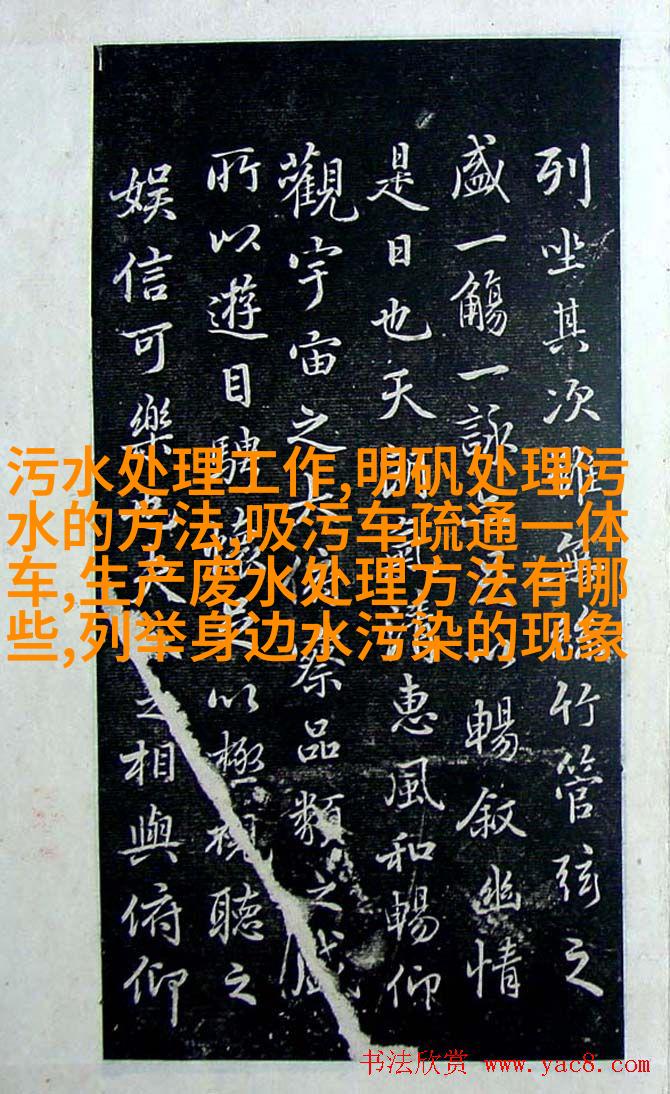 列坐其次雖無絲竹管弦之
盛一觴一詠亦足以暢叙幽情
是日也天朗氣清惠風和暢仰
觀宇宙之大俯察品類之盛
所以遊目騁懷足以極視聽之
娛信可樂也夫之相與俯仰
污水处理工作,明矾处理污
水的方法,吸污车疏通一体
车,生产废水处理方法有哪
些,列举身边水污染的现象
书法欣赏 www.yac8.com